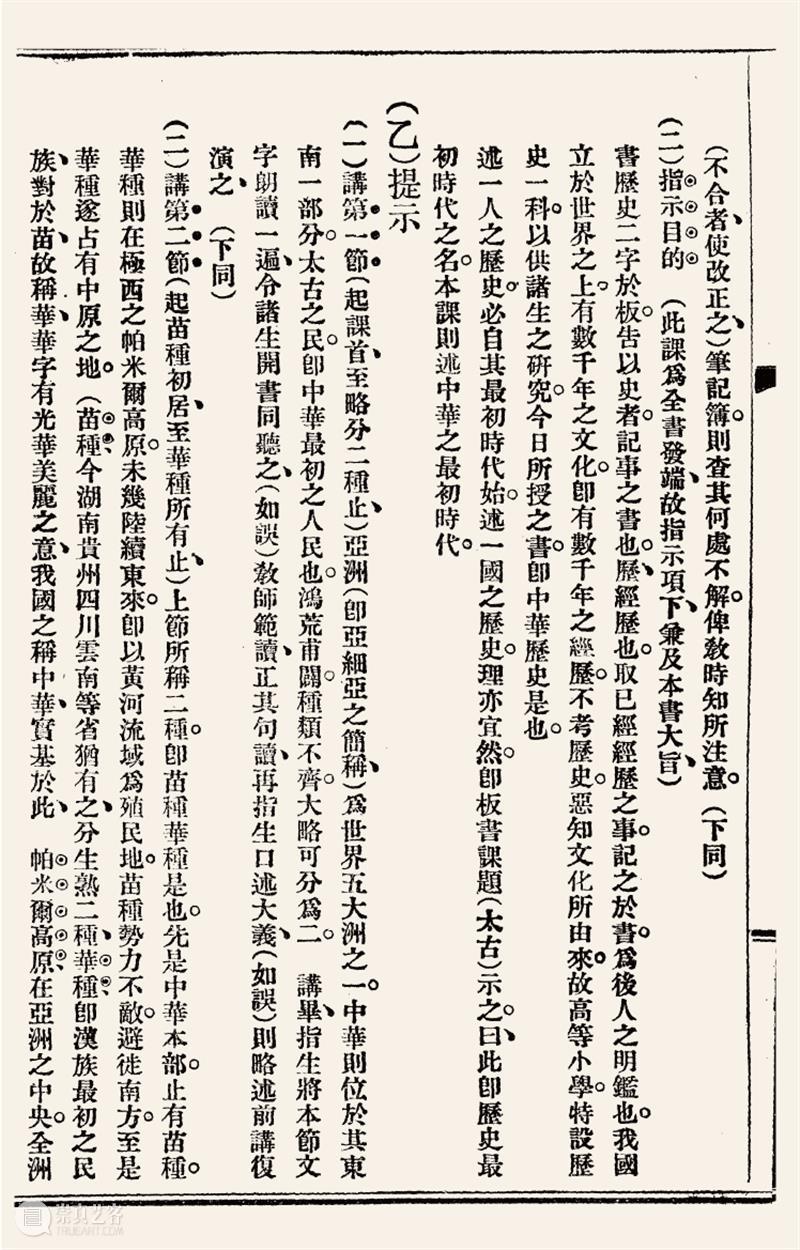 (不合者、使改正之、)筆記簿。則查其何處不解。俾敎時知所注意。(下同)
(二)指示目的 (此課爲全書發端、故指示項下、兼及本書大旨、)
書歷史二字於板。吿以史者。記事之書也。歷、經歷也。取已經經歷之事。記之於書。爲後人之明鑑也。我國
立於世界之上。有數千年之文化。卽有數千年之經歷。不考歷史。惡知文化所由來。故高等小學。特設歷
史一科。以供諸生之硏究。今日所授之書。卽中華歷史是也。
述一人之歷史。必自其最初時代始。述一國之歷史。理亦宜然。卽板書課題(太古)示之。曰、此卽歷史最
初時代之名。本課則述中華之最初時代。
(乙)提示
(一)講第一節(起課首、至略分二種、止、)亞洲(卽亞細亞之簡稱、)爲世界五大洲之一。中華則位於其東
南一部分。太古之民。卽中華最初之人民也。鴻荒甫闢。種類不齊。大略可分爲二 講畢、指生將本節文
字朗讀一遍、令諸生開書同聽之、(如誤)敎師範讀、正其句讀、再指生口述大義、(如誤)則略述前講復
演之、 (下同)
(二)講第二節(起苗種初居、至華種所有、止、)上節所稱二種。卽苗種華種是也。先是中華本部。止有苗種。
華種則在極西之帕米爾高原。未幾陸續東來。卽以黃河流域爲殖民地。苗種勢力不敵。避徙南方。至是
華種遂占有中原之地。(苗種、今湖南貴州四川雲南等省猶有之、分生熟二種、華種、卽漢族最初之民
族、對於苗、故稱華、華字有光華美麗之意、我國之稱中華、實基於此、 帕米爾高原、在亞洲之中央。全洲
崇真艺客
TRUEART.COM